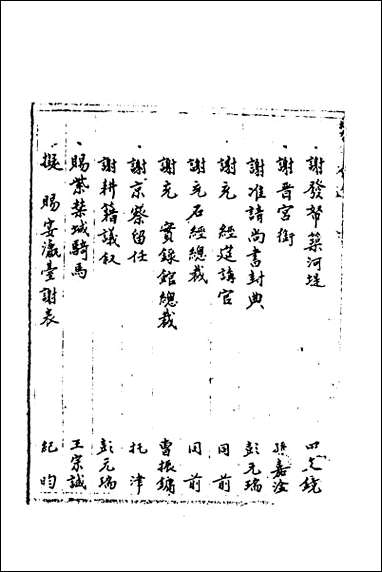 謝發帑築河堤 田文鏡
謝晉宮銜 孫嘉淦
謝准請尚書封典 彭元瑞
謝充經筵講官 同前
謝充石經總裁 同前
謝充實錄館總裁 曹振鏞
謝京察留任 托津
謝耕耤議叙 彭元瑞
賜紫禁城騎馬 王宗誠
擬賜宴瀛臺謝表 紀昀